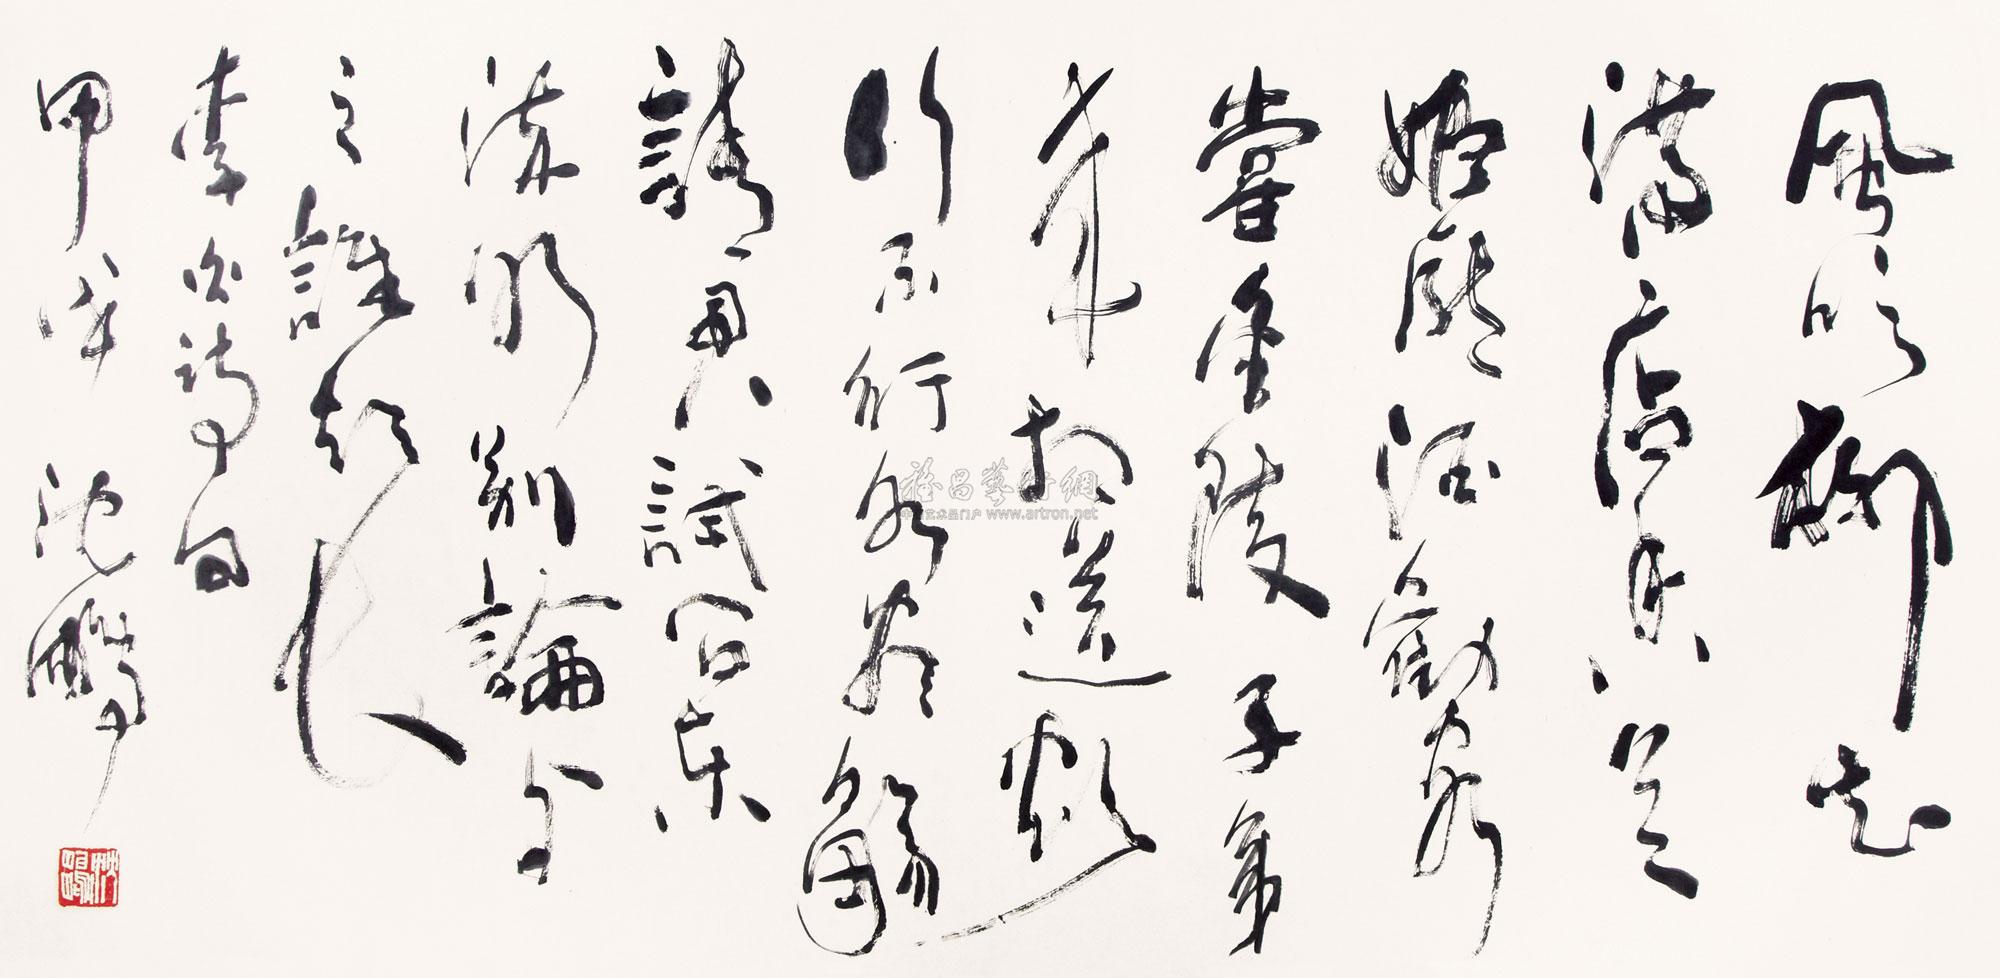 風吹柳花
滿店香吳
姬壓酒勸客
嘗金陵子弟
来相送欲
行不行各盡觴
請君試問東
流水別論与
之誰短長
李白詩句
甲戌 沈鵬
雅昌藝術網
中国艺术品门户 www.artron.net